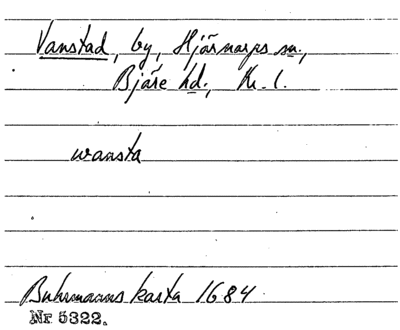 Vanstad, by, Hjärnarps sn.,
Bjäre hd., Kr. l.
wansta
Buhrmanns karta 1684.
Nr 5322.